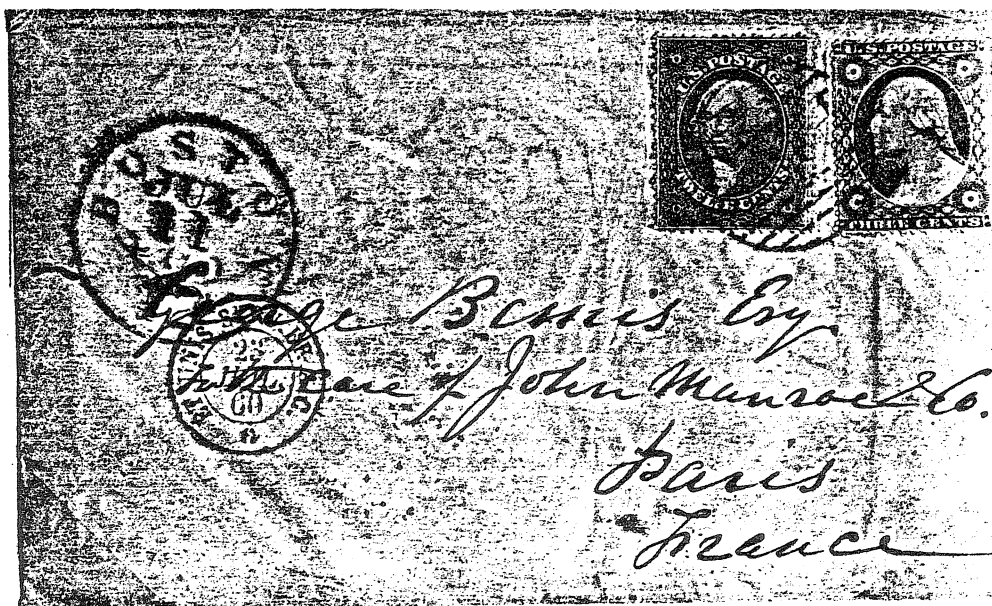 U.S. POSTAGE
TWELVE CENTS
U.S. POSTAGE
THREE CENTS
BOSTON
JUL
11
George Bemis Esq
care of John Munroe & Co.
Paris
France
22
JUIL
60